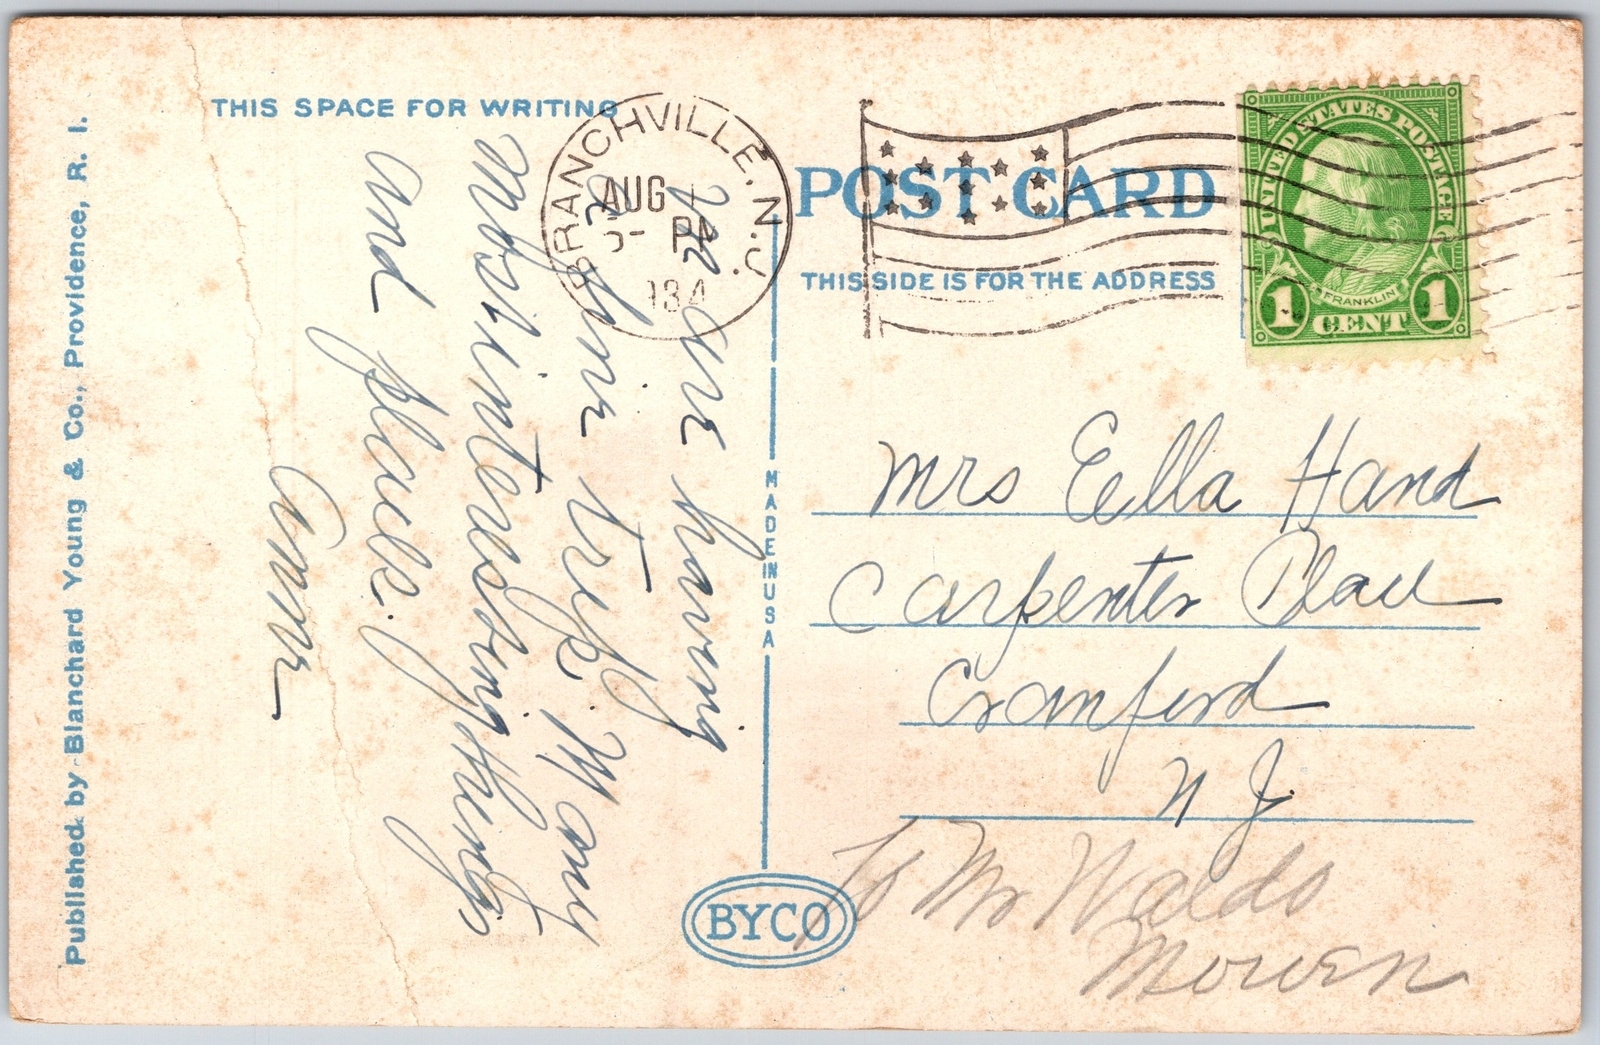 THIS SPACE FOR WRITING
BRANCHVILLE, N.J.
AUG
PM
1934
POST CARD
THIS SIDE IS FOR THE ADDRESS
UNITED STATES POSTAGE
FRANKLIN
1 CENT 1
We are having
a fine trip. Many
Most interesting things
and places.
Anna
Mrs Ella Hand
Carpenter Place
Cranford
N J.
To Mr Waldo
MADE IN USA
BYCO
Published by Blanchard Young & Co., Providence, R. I.